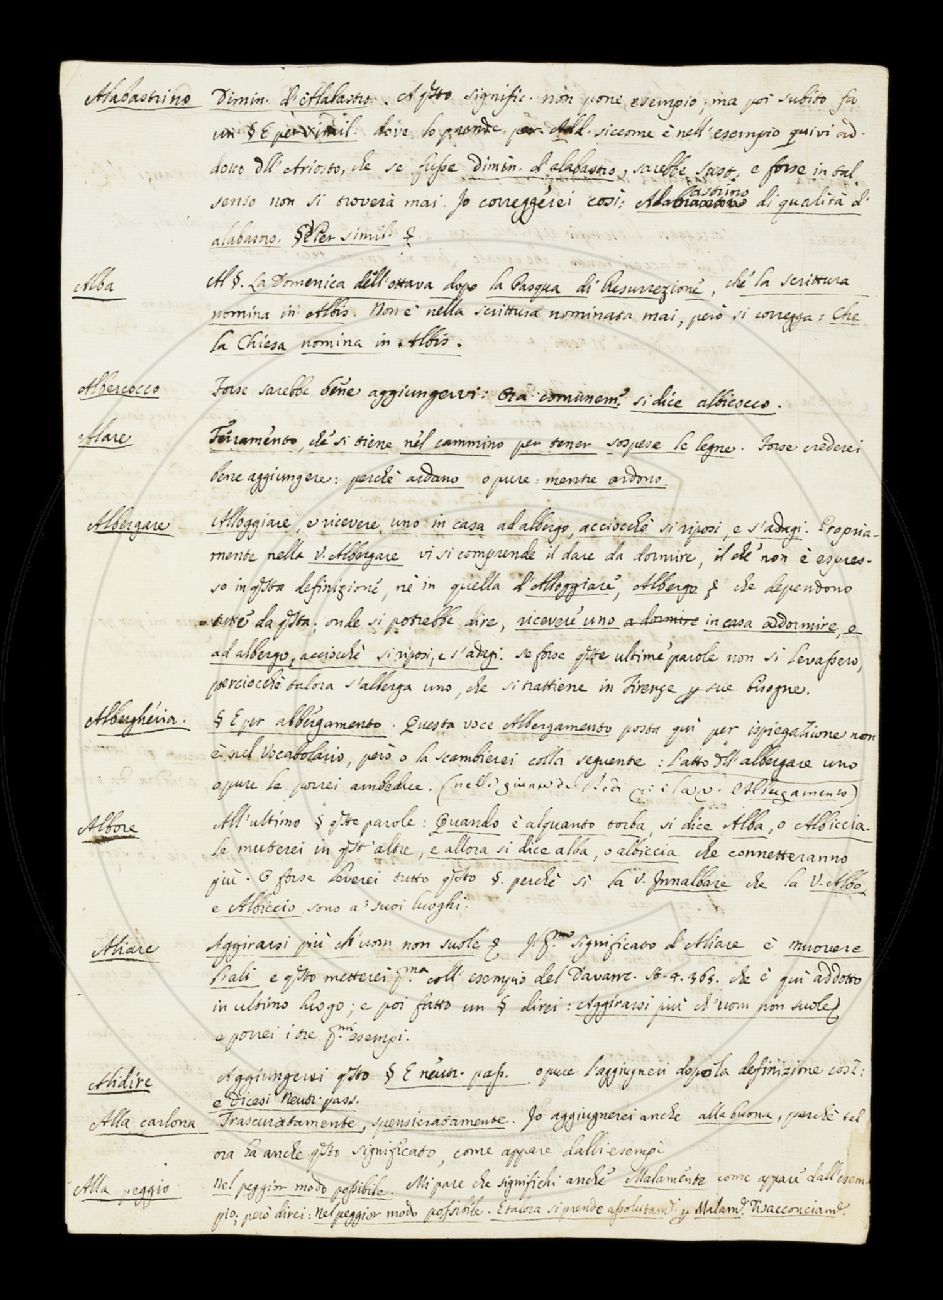 Alabastrino Dimin. d'Alabastro. A q̃sto signific. non pone esempio, ma poi subito fa
un § E per simil. dove lo prende per Add. siccome è nell'esempio quivi ad-
dotto dll' Ariosto, che se fusse Dimin. d'alabastro, sarebbe sust. e forse in tal
senso non si troverà mai. Jo correggerei così: Alabastrino di qualità d'
alabastro. § Per simil. &
Alba Al §. La Domenica dell'ottava dopo la Pasqua di Resurrezione, che la scrittura
nomina in Albis. Non è nella scrittura nominata mai, però si corregga: Che
la Chiesa nomina in Albis.
Albercocco Forse sarebbe bene aggiungervi: Ora comunem.e si dice albicocco.
Alare Ferramento, che si tiene nel cammino per tener sospese le legne. Forse crederei
bene aggiungere: perchè ardano opure: mentre ardono
Albergare Alloggiare, e ricevere uno in casa ad albergo, acciocchè si riposi, e s'adagi. Propria-
mente nella V. Albergare vi si comprende il dare da dormire, il che non è espres-
so in q̃sta definizione, nè in quella d'Alloggiare, Albergo & che dependono
tutte da q̃sta; onde si potrebbe dire, ricevere uno a dormire in casa addormire, e
ad albergo, acciocchè si riposi, e s'adagi. se forse q̃ste ultime parole non si levassero,
perciocchè talora s'alberga uno, che si trattiene in Firenze p sue bisogne.
Albergheria. § E per albergamento. Questa voce Albergamento posta quì per ispiegazione non
è nel Vocabolario, però o la scambierei colla seguente: L'atto dll' albergare uno
opure le porrei ambedue.
Albore All'ultimo § q̃ste parole: Quando è alquanto torba, si dice Alba, o Albiccia.
le muterei in q̃st'altre, e allora si dice alba, o albiccia che connetteranno
più. O forse leverei tutto q̃sto §. perchè si ha V. Innalbare che la V. Albo,
e Albiccio sono a' suoi luoghi.
Aliare Aggirarsi più ch'uom non suole & Jl p.mo significato d'Aliare è muovere
l'ali e q̃sto metterei p.ma coll'esempio del Davanz. St. 4. 363. che è quì addotto
in ultimo luogo; e poi fatto un § direi: Aggirarsi più ch'uom non suole&
e porrei i tre p.mi esempi.
Alidire Aggiungervi q̃sto § E neutr. pass. opure l'aggiugnerei dopo la definizione così:
e dicesi Neutr. pass.
Alla carlona Trascuratamente, spensieratamente. Jo aggiugnerei anche alla buona, perchè tal
ora ha anche q̃sto significato, come appare dalli esempi
Alla peggio Nel peggior modo possibile. Mi pare che significhi anche Malamente come appare dall'esem-
pio, però direi: Nel peggior modo possibile. E talora si prende assolutam.e p Malam.e Disacconciam.e